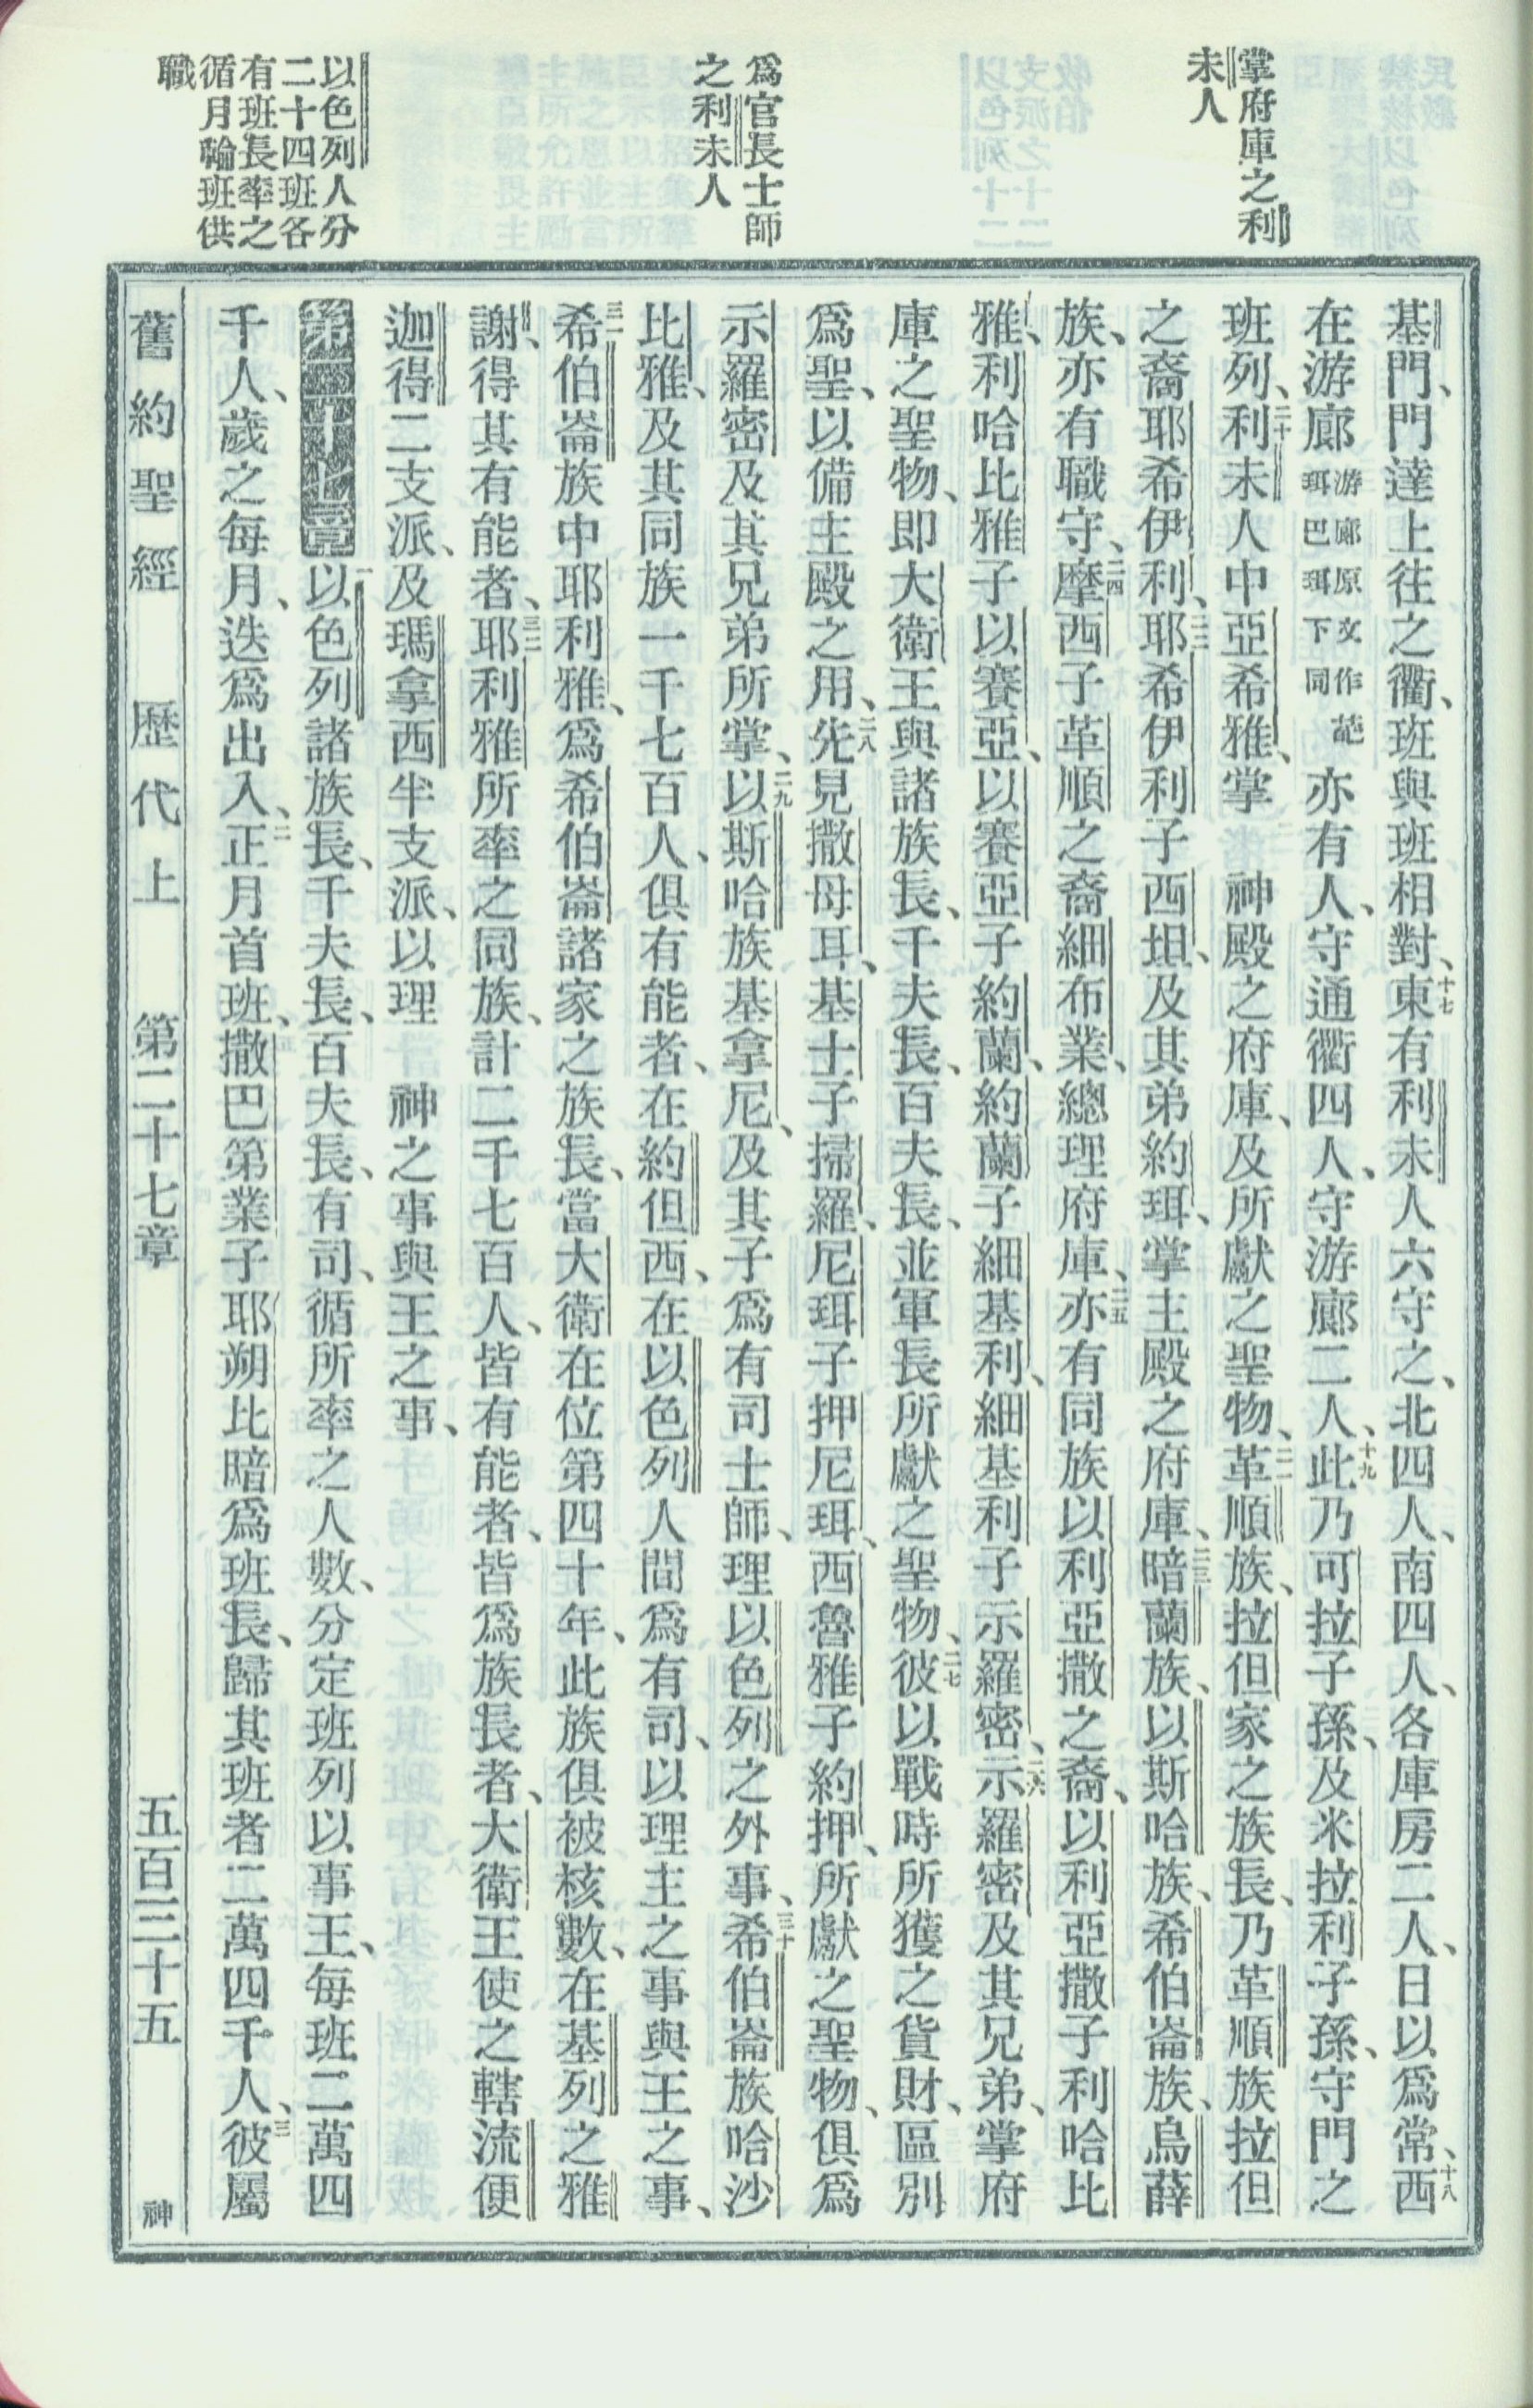 掌府庫之利
未人
爲官長士師
之利未人
以色列人分
二十四班各
有班長率之
循月輪班供
職
基門、門達上往之衢、班與班相對、十七東有利未人六守之、北四人、南四人、各庫房二人、日以爲常、十八西
在游廊游廊原文作葩珥巴珥下同亦有人、守通衢四人、守游廊二人、十九此乃可拉子孫、及米拉利子孫、守門之
班列、二十利未人中亞希雅、掌 神殿之府庫、及所獻之聖物、二一革順族、拉但家之族長、乃革順族拉但
之裔耶希伊利、二二耶希伊利子西坦、及其弟約珥、掌主殿之府庫、二三暗蘭族、以斯哈族、希伯崙族、烏薛
族、亦有職守、二四摩西子革順之裔細布業、總理府庫、二五亦有同族以利亞撒之裔、以利亞撒子利哈比
雅、利哈比雅子以賽亞、以賽亞子約蘭、約蘭子細基利、細基利子示羅密、二六示羅密及其兄弟、掌府
庫之聖物、即大衛王與諸族長、千夫長、百夫長、並軍長所獻之聖物、二七彼以戰時所獲之貨財、區別
爲聖、以備主殿之用、二八先見撒母耳、基士子掃羅、尼珥子押尼珥、西魯雅子約押、所獻之聖物、俱爲
示羅密及其兄弟所掌、二九以斯哈族基拿尼、及其子爲有司士師、理以色列之外事、三十希伯崙族哈沙
比雅、及其同族一千七百人、俱有能者、在約但西、在以色列人間爲有司、以理主之事與王之事、
三一希伯崙族中耶利雅、爲希伯崙諸家之族長、當大衛在位第四十年、此族俱被核數、在基列之雅
謝、得其有能者、三二耶利雅所率之同族、計二千七百人、皆有能者、皆爲族長者、大衛王使之轄流便
迦得二支派、及瑪拿西半支派、以理 神之事與王之事、
第二十七章一以色列諸族長、千夫長、百夫長、有司、循所率之人數、分定班列以事王、每班二萬四
千人、歲之每月、迭爲出入、二正月首班、撒巴第業子耶朔比暗爲班長、歸其班者二萬四千人、三彼屬
舊約聖經 歷代上 第二十七章 五百三十五 神